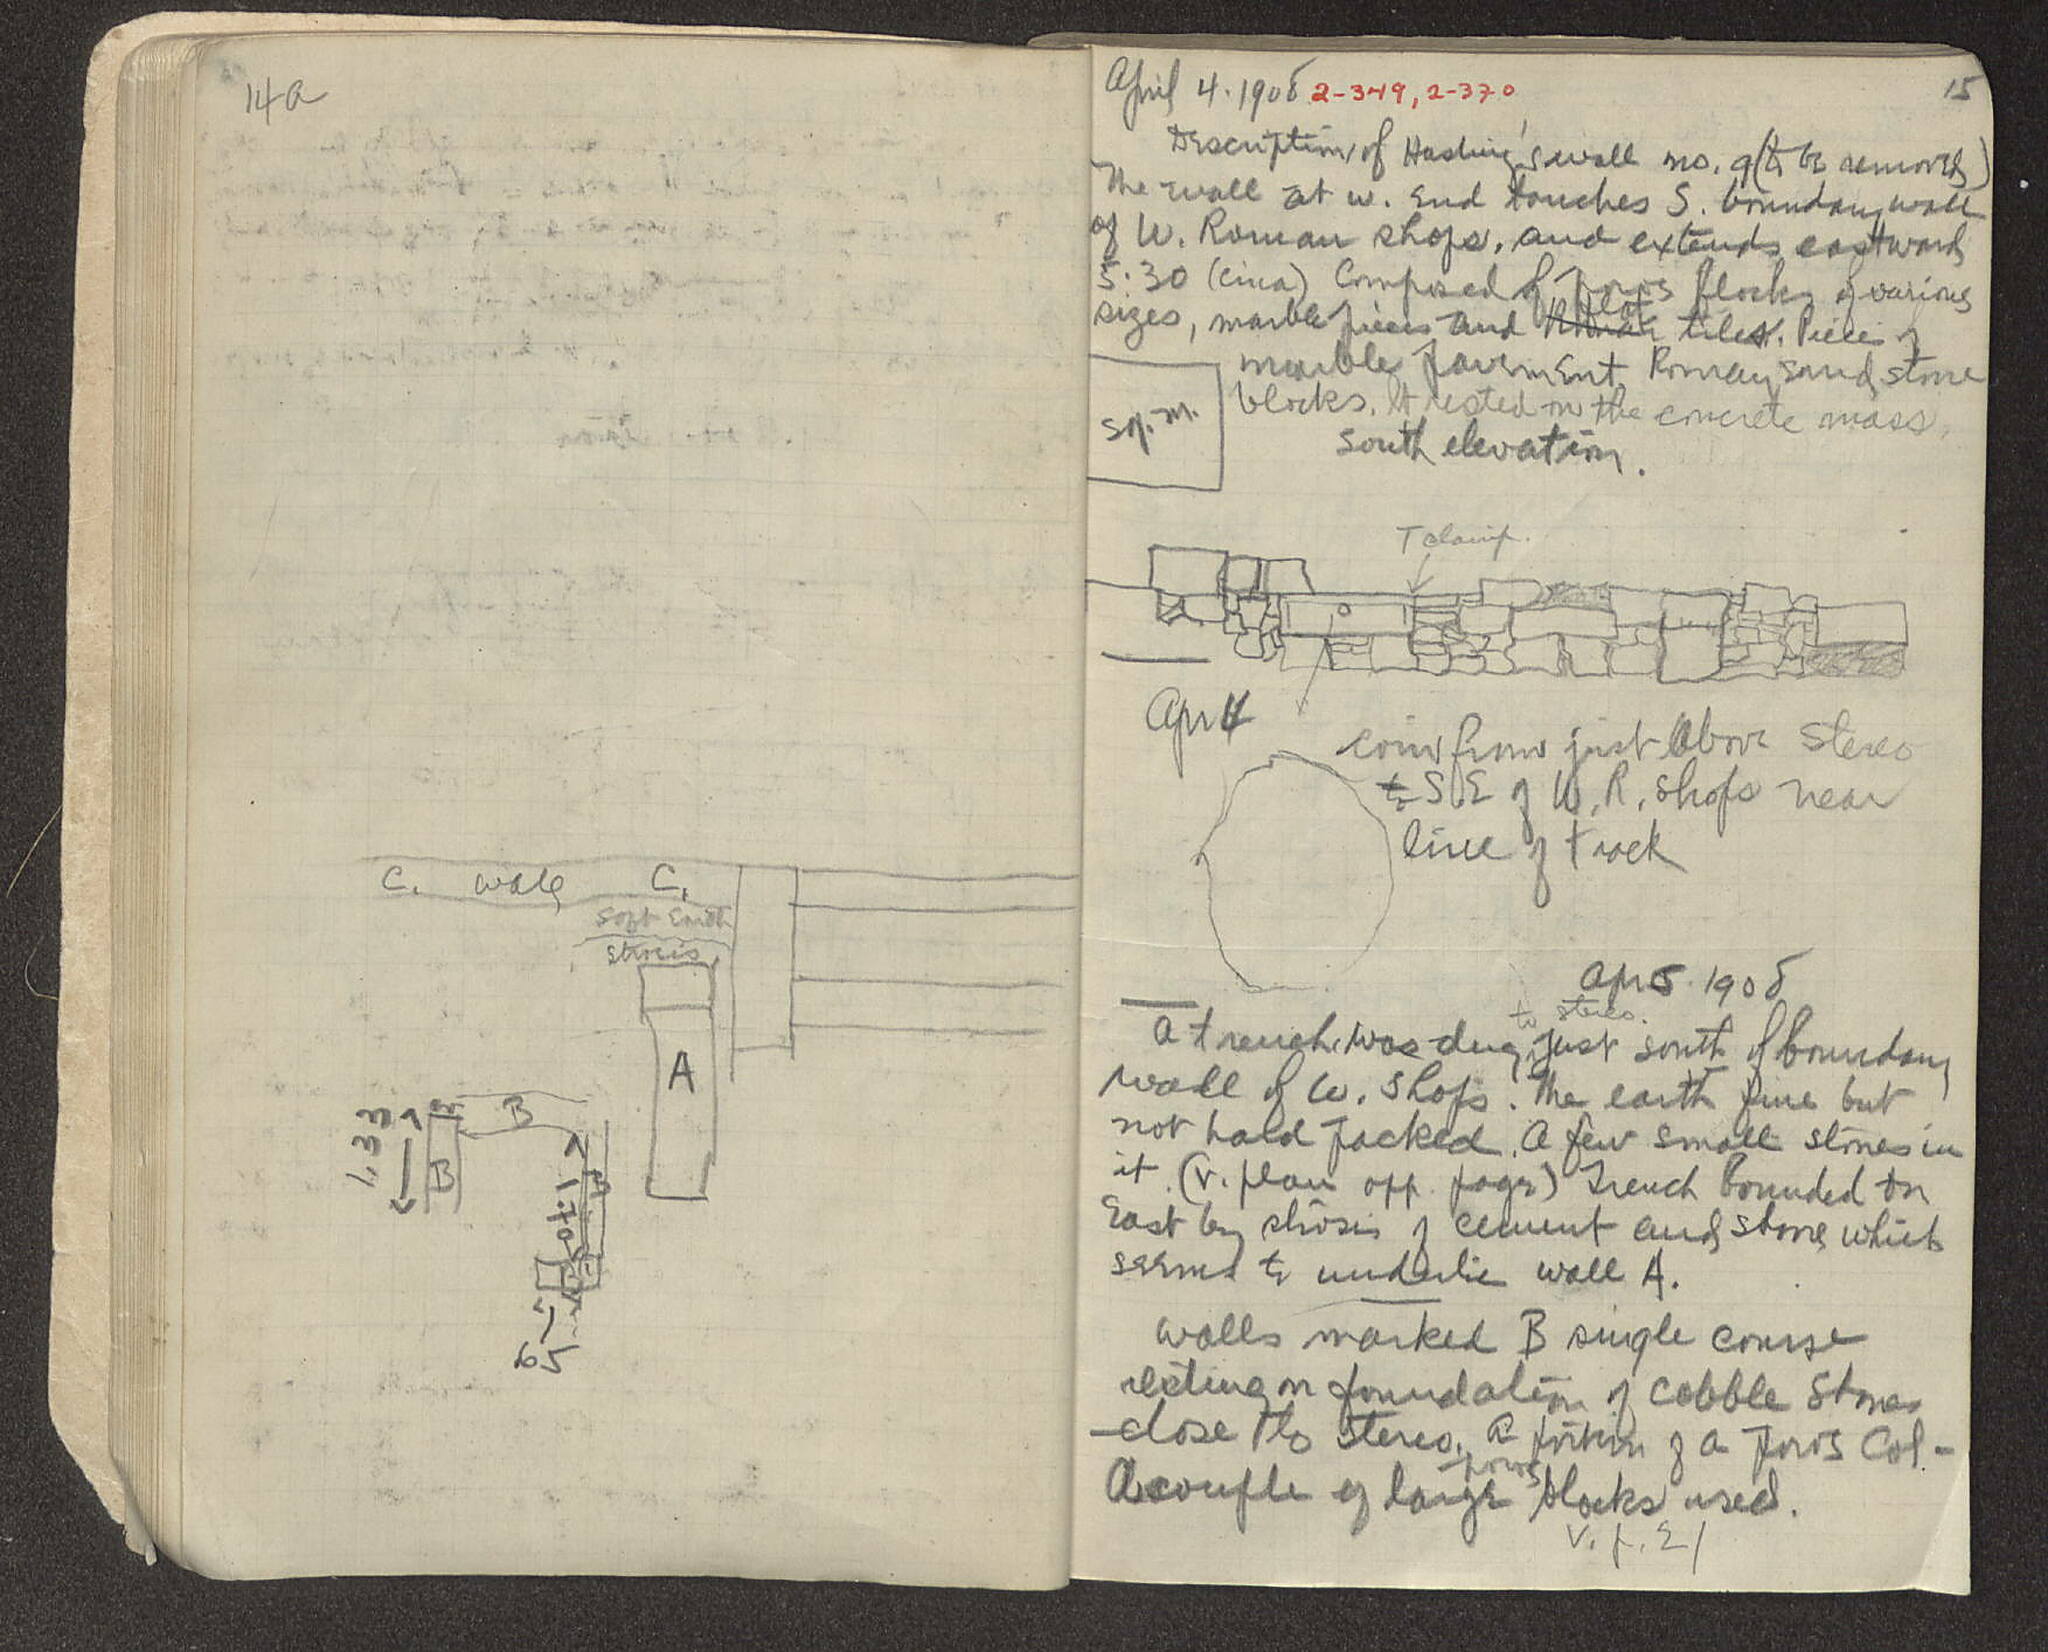 14a
C. wall C.
soft earth
strosis
A
B
B
1.33
1.70
65
April 4. 1908 2-349, 2-370 15
Description of Hasting's wall no. 9 (to be removed)
The wall at w. end touches S. boundary wall
of W. Roman shops, and extends eastward
5.30 (circa) Composed of poros blocks of various
sizes, marble pieces and flat tiles. Pieces of
marble pavement, Roman sand stone
blocks. It rested on the concrete mass.
sq. m.
South elevation.
T clamp.
Apr 4
coin from just above stereo
to S.E of W. R. shops near
line of track
Apr 5. 1908
A trench was dug to stereo. just south of boundary
wall of W. shops. The earth fine but
not hard packed. A few small stones in
it. (v. plan opp. page) Trench bounded on
East by strosis of cement and stone which
seems to underlie wall A.
walls marked B single course
resting on foundation of cobble stones
close to stereo. A portion of a poros Col-
A couple of large poros blocks used.
v. p. 21